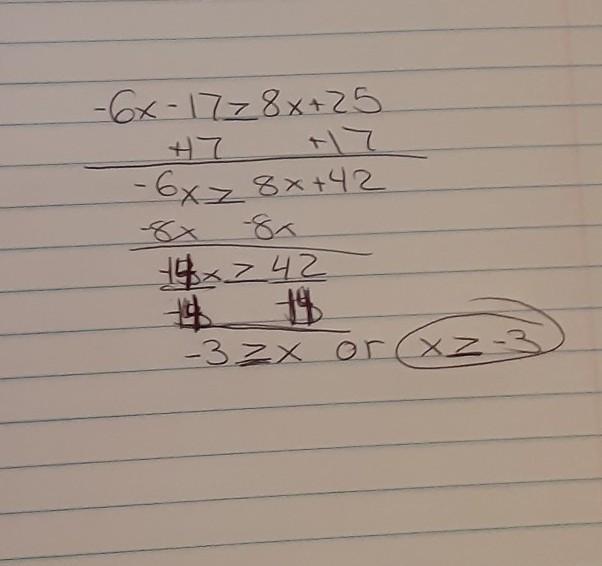 -6x-17≥8x+25
+17 +17
-6x≥8x+42
-8x -8x
-14x≥42
-14 -14
-3≥x or x≥-3